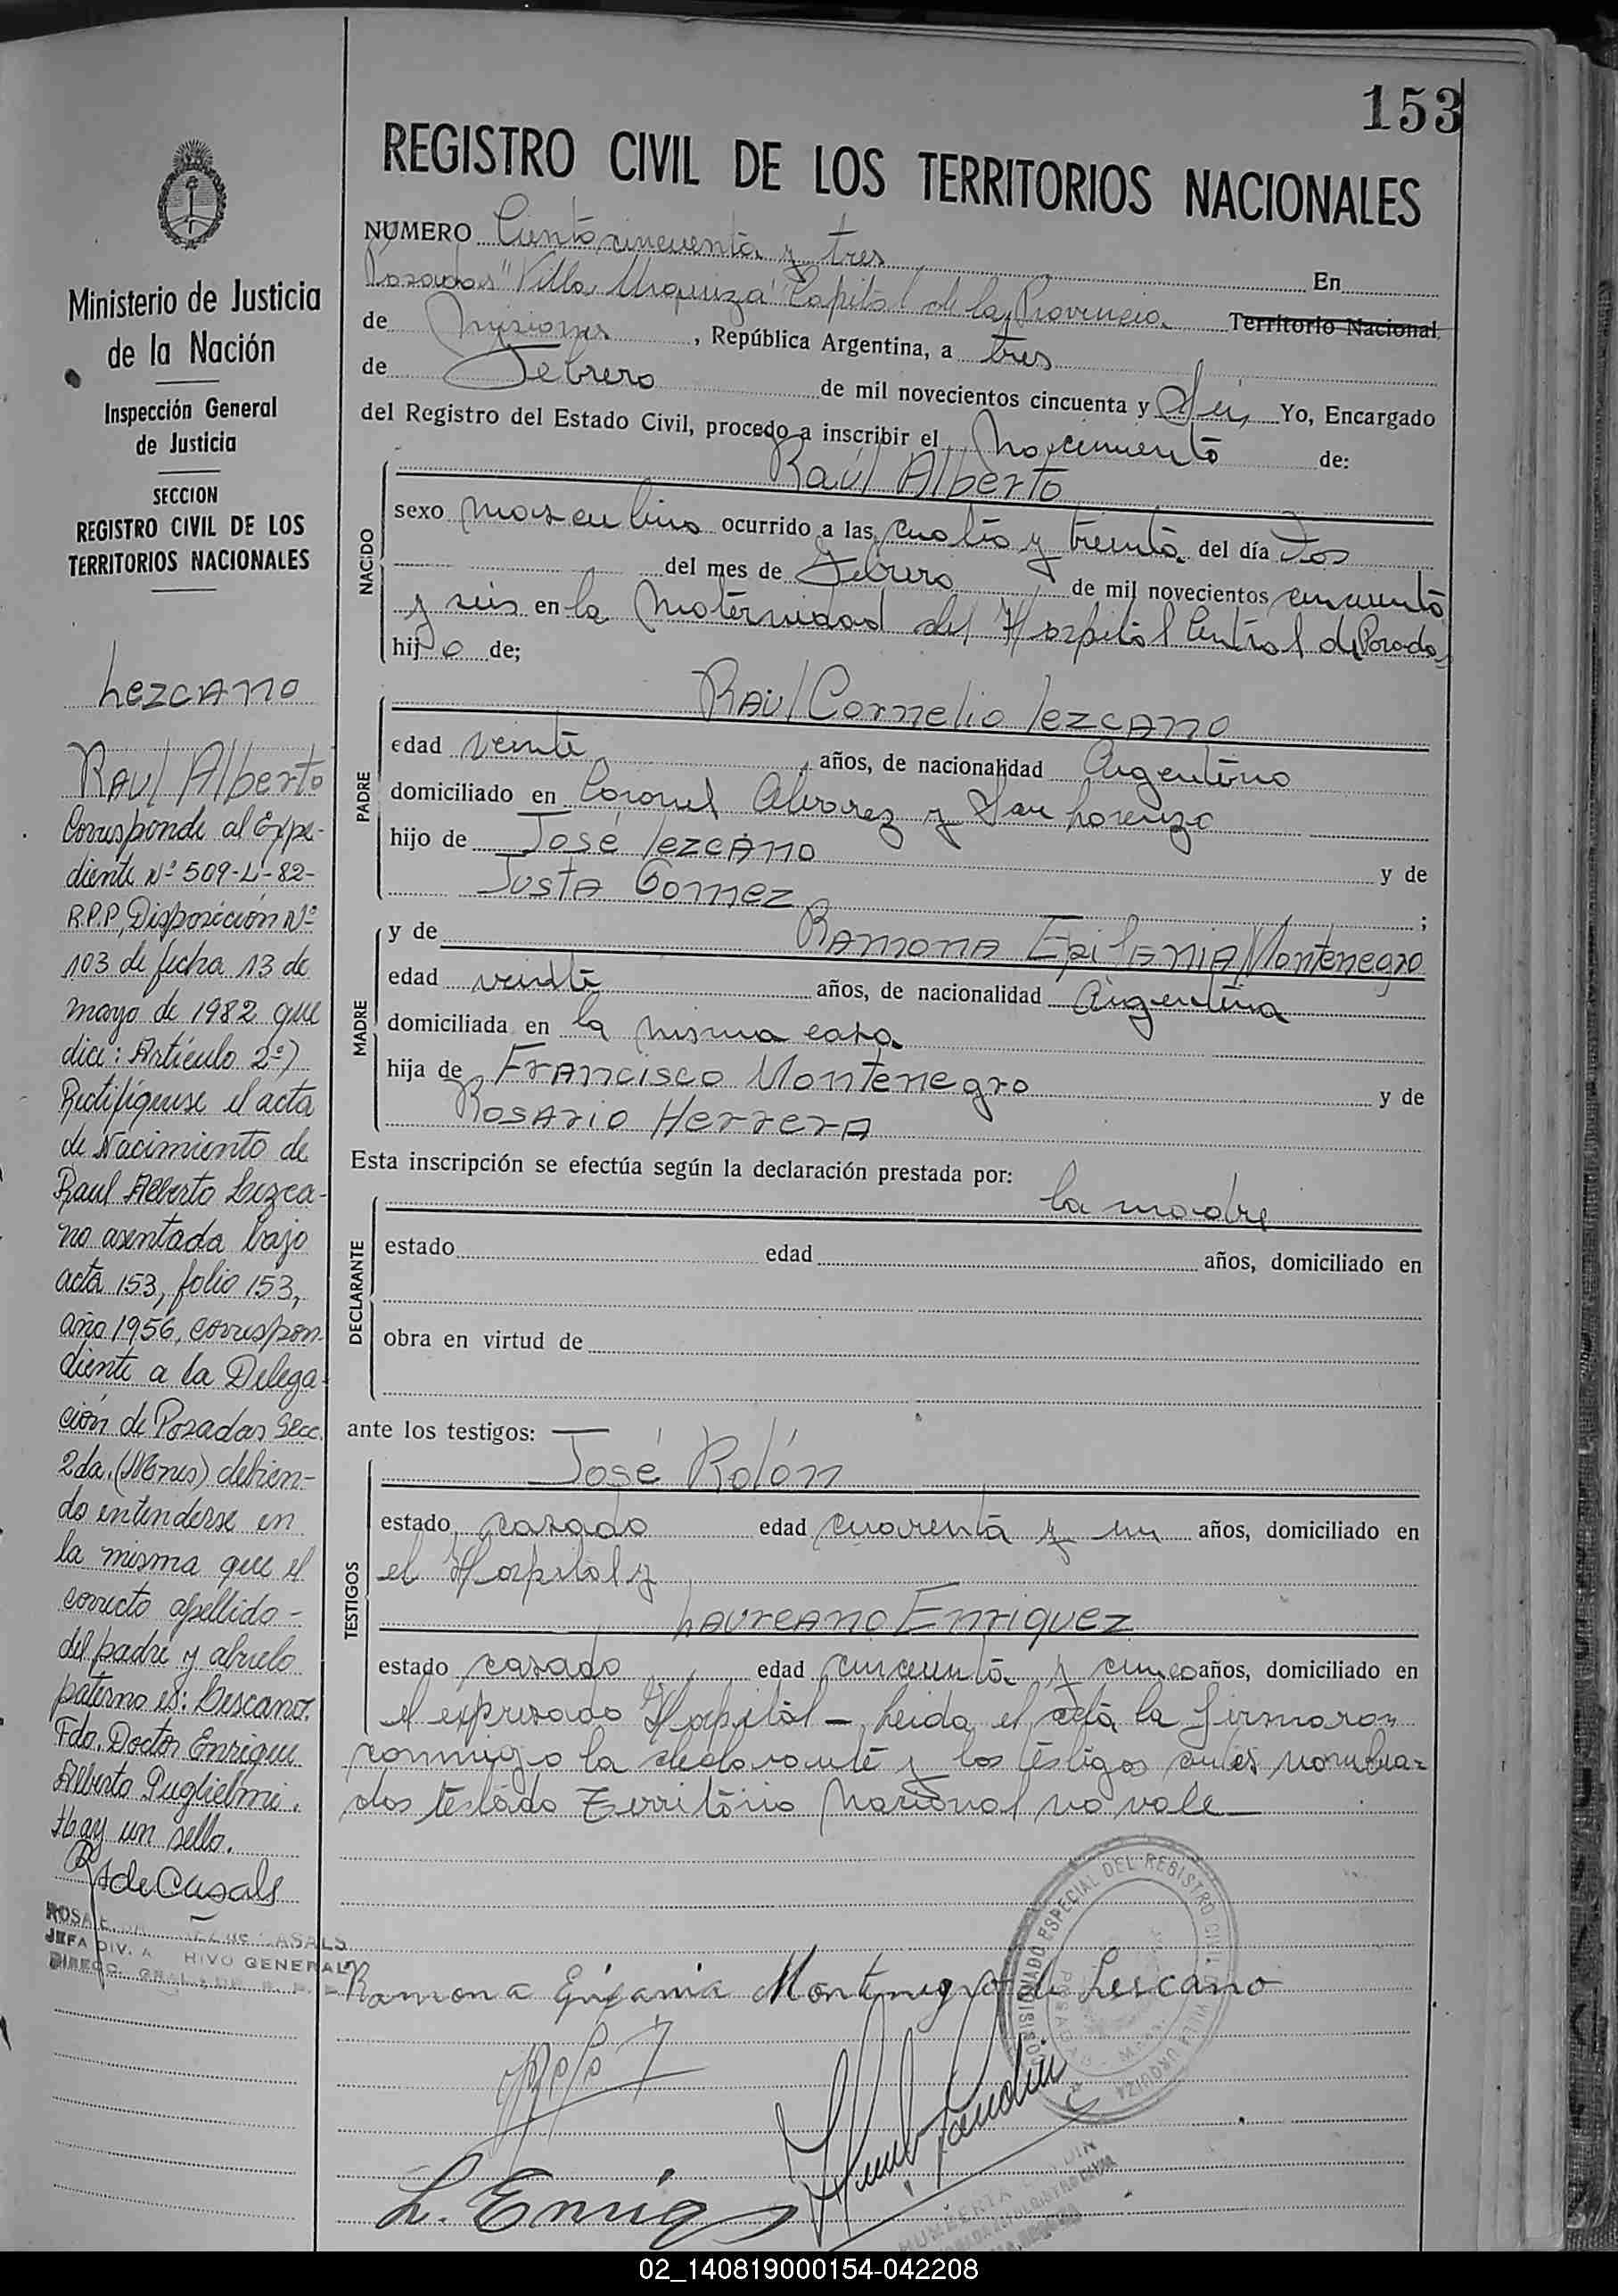 153
REGISTRO CIVIL DE LOS TERRITORIOS NACIONALES
NUMERO Ciento cincuenta y tres En
Posadas "Villa Urquiza" Capital de la Provincia Territorio Nacional
de Misiones, República Argentina, a tres
de Febrero de mil novecientos cincuenta y Seis Yo, Encargado
del Registro del Estado Civil, procedo a inscribir el Nacimiento de:
NACIDO
Raúl Alberto
sexo masculino ocurrido a las cuatro y treinta del día Dos
del mes de Febrero de mil novecientos cincuenta
y seis en la Maternidad del Hospital Central de Posadas
hijo de;
PADRE
Raúl Cornelio lezcano
edad veinte años, de nacionalidad Argentino
domiciliado en Coronel Alvarez y San Lorenzo
hijo de José lezcano y de
Justa Gomez ;
MADRE
y de Ramona Epifania Montenegro
edad veinte años, de nacionalidad Argentina
domiciliada en la misma casa
hija de Francisco Montenegro y de
Rosario Herrera
Esta inscripción se efectúa según la declaración prestada por:
DECLARANTE
la madre
estado edad años, domiciliado en
obra en virtud de
ante los testigos:
TESTIGOS
José Rolón
estado casado edad cuarenta y un años, domiciliado en
el Hospital y
Laureano Enriquez
estado casado edad cincuenta y cinco años, domiciliado en
el expresado Hospital – Leida el acta la firmaron
conmigo la declarante y los testigos antes nombra=
dos testado Territorio Nacional no vale –
Ramona Epifania Montenegro de Lescano
L. Enriq
COMISIONADO ESPECIAL DEL REGISTRO CIVIL
VILLA URQUIZA
POSADAS
Ministerio de Justicia
de la Nación
Inspección General
de Justicia
SECCION
REGISTRO CIVIL DE LOS
TERRITORIOS NACIONALES
Lezcano
Raul Alberto
Corresponde al Expe-
diente Nº 509-L-82-
R.P.P, Disposición Nº
103 de fecha 13 de
mayo de 1982 que
dice: Artículo 2º)
Rectifíquese el acta
de Nacimiento de
Raul Alberto Lezca-
no asentada bajo
acta 153, folio 153,
año 1956, correspon-
diente a la Delega-
ción de Posadas Secc.
2da. (Mnes) debien-
do entenderse en
la misma que el
correcto apellido-
del padre y abuelo
paterno es: Lescano.
Fdo. Doctor Enrique
Alberto Puglielmi.
Hay un sello.
R de Casals
JEFA DIV. A HIVO GENERAL
02_140819000154-042208